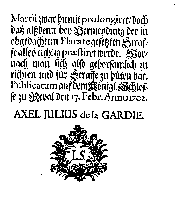 Martii zwar hiemit prolongiret: doch
daß alßdenn bey Vermeydung der in
obgedachten Placat gesetzten Straf-
fe alles richtig præstiret werde. Wor-
nach man sich also gehorsamlich zu
richten und für Straffe zu hüten hat.
Publicatum auf dem Königl. Schlos-
se zu Reval den 17. Febr. Anno 1702.
AXEL JULIUS de la GARDIE.
LS